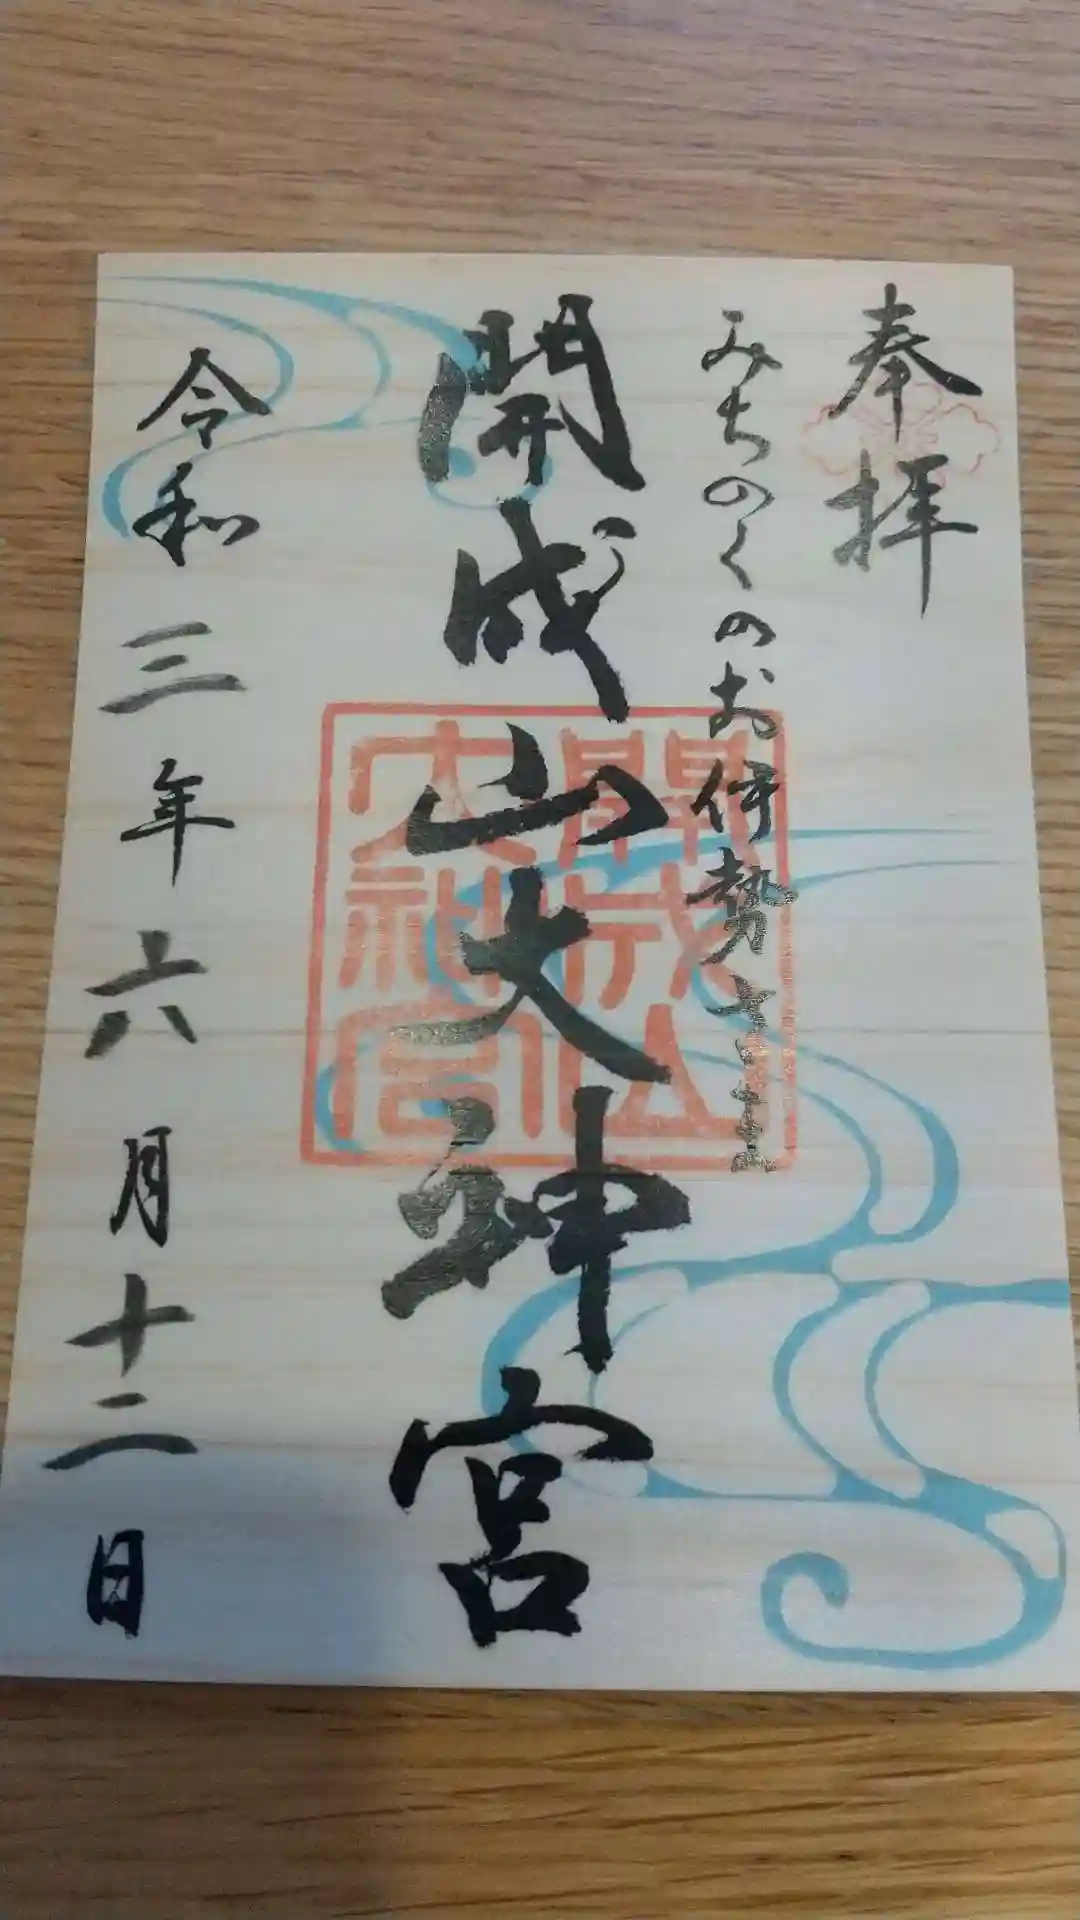 奉拝
みちのくのお伊勢さま
開成山大神宮
開成山大神宮
令和三年六月十二日